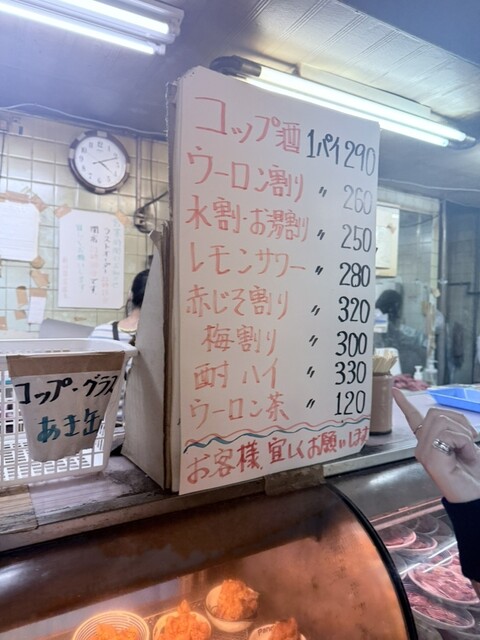 コップ酒 1パイ 290
ウーロン割り 〃 260
水割・お湯割り 〃 250
レモンサワー 〃 280
赤じそ割り 〃 320
梅割り 〃 300
酎ハイ 〃 330
ウーロン茶 〃 120
お客様、宜しくお願いします
コップ・グラス
あき缶